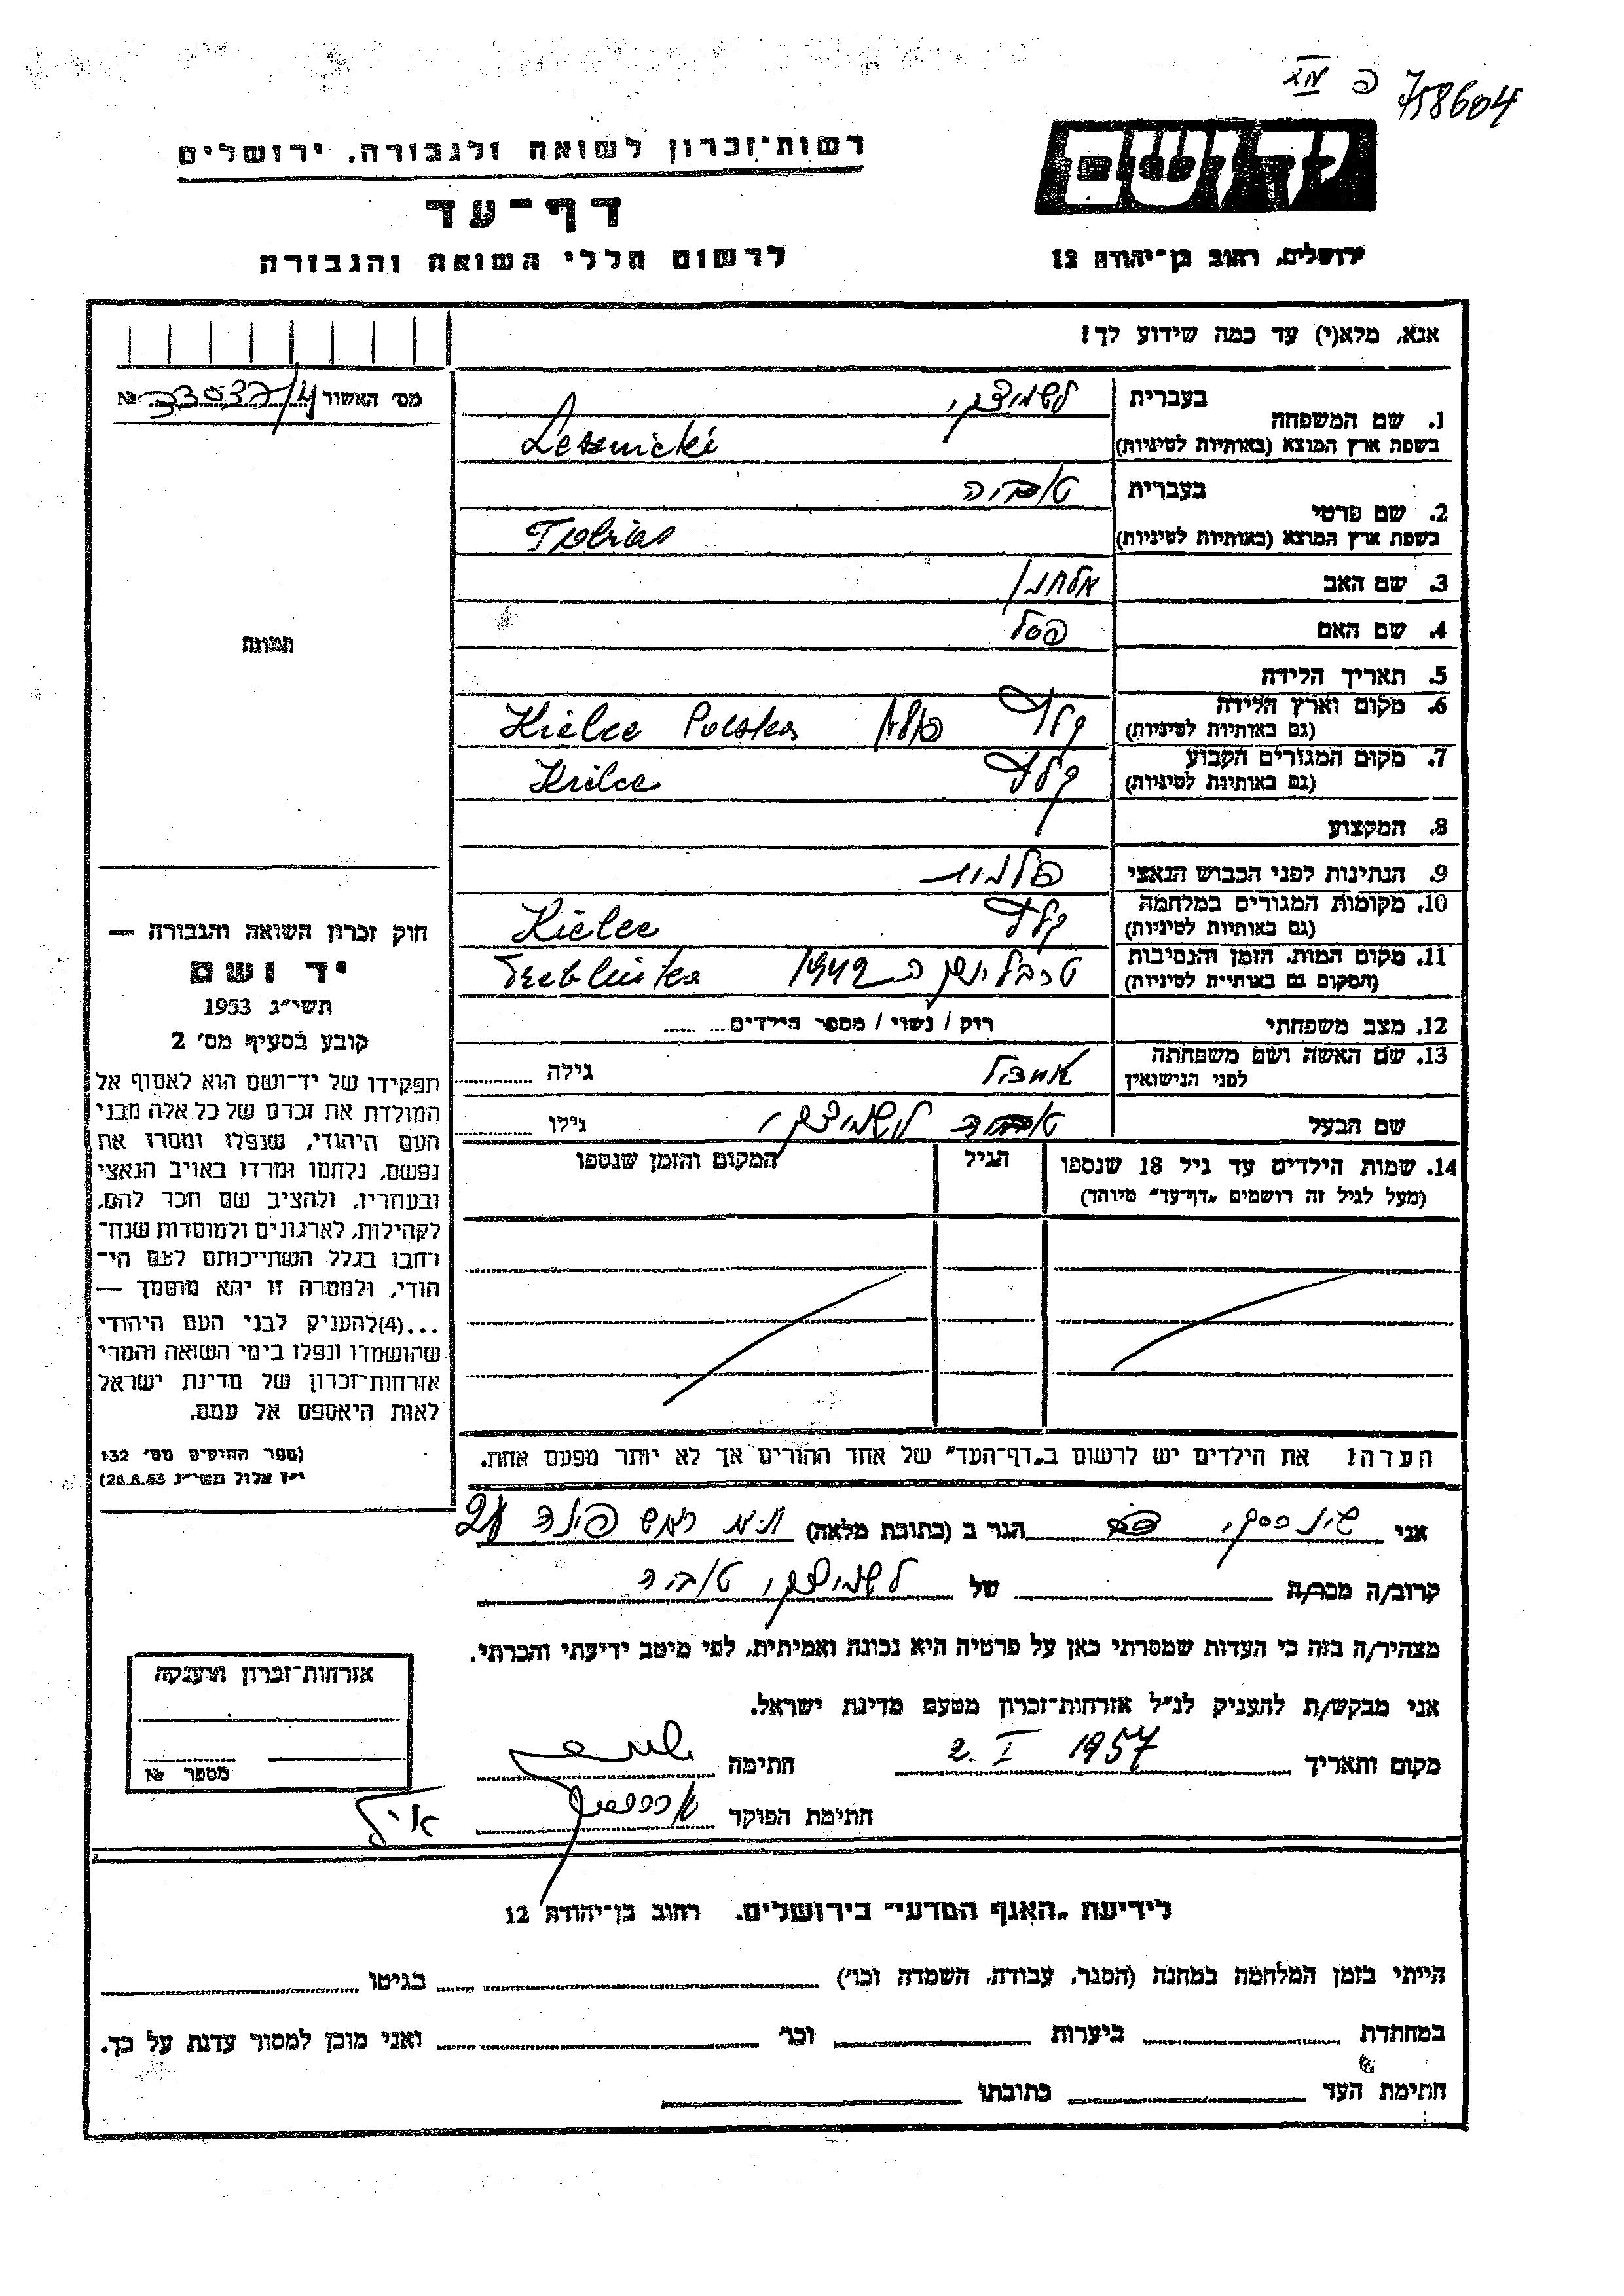 758604
יד ושם
רשות־זכרון לשואה ולגבורה, ירושלים
דף־עד
לרשום חללי השואה והגבורה
ירושלים, רחוב בן־יהודה 12
אנא, מלא(י) עד כמה שידוע לך!
מס׳ האשור №
1. שם המשפחה
בעברית
בשפת ארץ המוצא (באותיות לטיניות)
Lesznicki
2. שם פרטי
בעברית טוביה
בשפת ארץ המוצא (באותיות לטיניות)
Tobias
3. שם האב אלחנן
4. שם האם פסל
5. תאריך הלידה
6. מקום וארץ הלידה
(גם באותיות לטיניות)
קלץ פולין Kielce Polska
7. מקום המגורים הקבוע
(גם באותיות לטיניות)
קלץ Kielce
8. המקצוע
9. הנתינות לפני הכבוש הנאצי פולנית
10. מקומות המגורים במלחמה
(גם באותיות לטיניות)
קלץ Kielce
11. מקום המות, הזמן והנסיבות
(המקום גם באותיות לטיניות)
1942 Treblinka
12. מצב משפחתי רוק / נשוי / מספר הילדים
13. שם האשה ושם משפחתה
לפני הנישואין
גילה
שם הבעל טוביה גילו
14. שמות הילדים עד גיל 18 שנספו הגיל המקום והזמן שנספו
(מעל לגיל זה רושמים „דף־עד״ מיוחד)
הערה! את הילדים יש לרשום ב„דף־העד״ של אחד ההורים אך לא יותר מפעם אחת.
תמונה
חוק זכרון השואה והגבורה —
יד ושם
תשי״ג 1953
קובע בסעיף מס׳ 2
תפקידו של יד־ושם הוא לאסוף אל
המולדת את זכרם של כל אלה מבני
העם היהודי, שנפלו ומסרו את
נפשם, נלחמו ומרדו באויב הנאצי
ובעוזריו, ולהציב שם וזכר להם,
לקהילות, לארגונים ולמוסדות שנח־
רחבו בגלל השתייכותם לעם הי־
הודי, ולמטרה זו יהא מוסמך —
...(4) להעניק לבני העם היהודי
שהושמדו ונפלו בימי השואה והמרי
אזרחות־זכרון של מדינת ישראל
לאות היאספם אל עמם.
(ספר החוקים מס׳ 132
י״ז אלול תשי״ג 28.8.53)
אני הגר ב (כתובת מלאה)
קרוב/ה מכר/ה של טוביה
מצהיר/ה בזה כי העדות שמסרתי כאן על פרטיה היא נכונה ואמיתית, לפי מיטב ידיעתי והכרתי.
אני מבקש/ת להעניק לנ״ל אזרחות־זכרון מטעם מדינת ישראל.
מקום ותאריך 2. I 1957 חתימה
חתימת הפוקד
אזרחות־זכרון הוענקה
מספר №
לידיעת „האגף המדעי״ בירושלים, רחוב בן־יהודה 12
הייתי בזמן המלחמה במחנה (הסגר, עבודה, השמדה וכו׳) בגיטו
במחתרת ביערות וכו׳ ואני מוכן למסור עדות על כך.
חתימת העד כתובתו